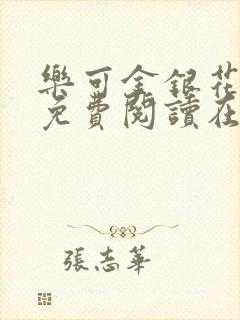 樂可金銀花
免費閱讀在
張志華